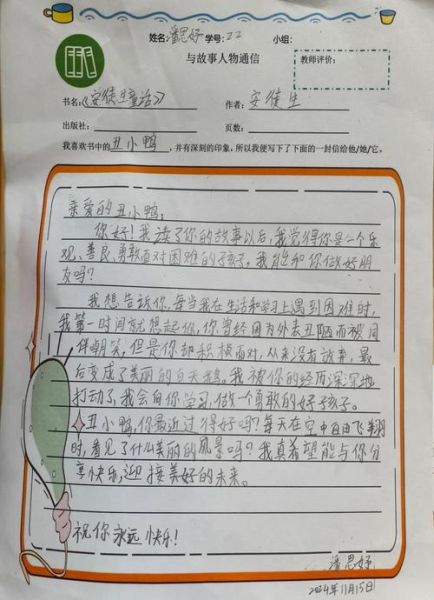 姓名:潘思妤 学号:22 小组:
与故事人物通信
教师评价:
书名:《安徒生童话》 作者:安徒生
出版社: 页数:
我喜欢书中的丑小鸭,并有深刻的印象,所以我便写下了下面的一封信给他/她/它。
亲爱的丑小鸭:
你好!我读了你的故事以后,我觉得你是一个乐
观、善良、勇敢面对困难的孩子。我能和你做好朋
友吗?
我想告诉你,每当我在生活和学习上遇到困难时,
我第一时间就想起你,你曾经因为外表丑陋而被同
伴嘲笑,但是你却积极面对,从来没有放弃,最
后变成了美丽的白天鹅。我被你的经历深深地
打动了,我会向你学习,做一个勇敢的好孩子。
丑小鸭,你最近过得好吗?每天在空中自由飞翔
时,看见了什么美丽的风景吗?我真希望能与你分
享快乐,迎接美好的未来。
祝你永远快乐!
潘思妤
2024年11月15日